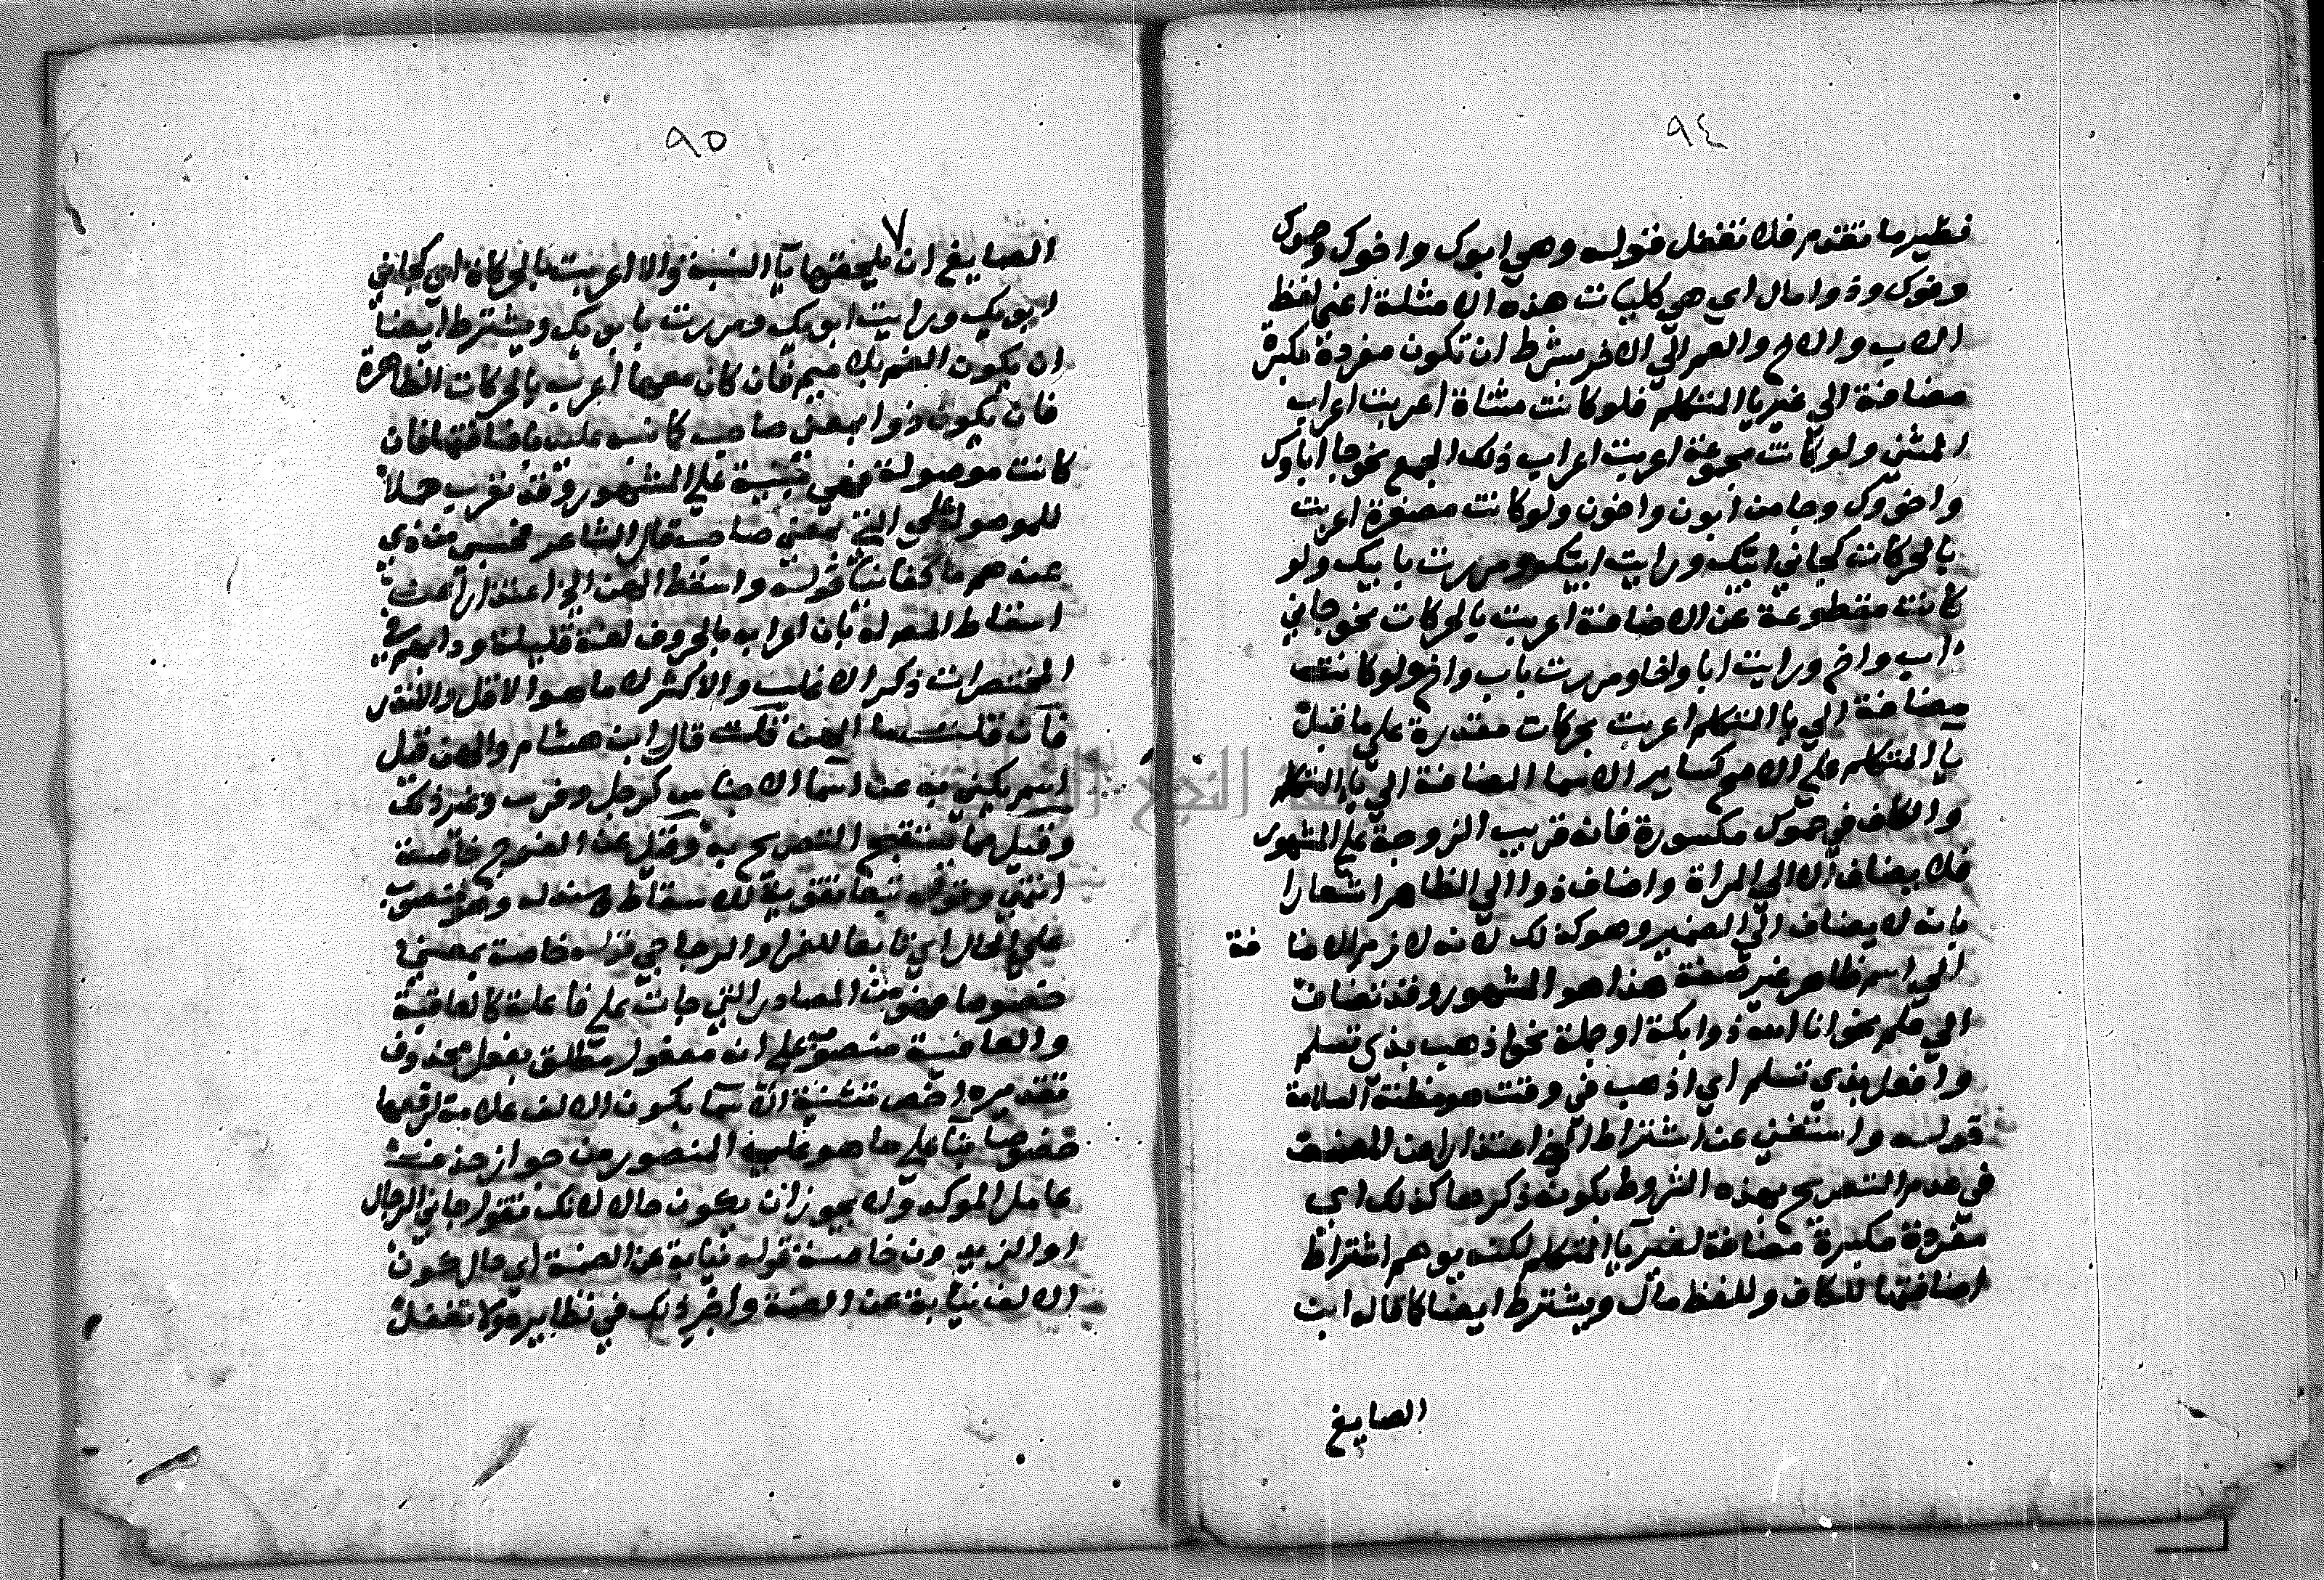 ٩٤
نظير ما تقدم فلا تغفل قوله وهي ابوك واخوك وحموك
وفوك وذوا مال اي هي كلمات هذه الامثلة اعني لفظ
الاب والاخ والحم الي الاخر بشرط ان تكون مفردة مكبرة
مضافة الي غير يا المتكلم فلو كانت مثناة اعربت اعراب
المثني ولو كانت مجموعة اعربت اعراب ذلك الجمع نحو جا اباوك
واخوتك وجا من ابون واخون ولو كانت مصغرة اعربت
بالحركات كجاني ابيك ورايت ابيك ومررت بابيك ولو
كانت مقطوعة عن الاضافة اعربت بالحركات نحو جاني
اب واخ ورايت ابا واخا ومررت باب واخ ولو كانت
مضافة الي يا المتكلم اعربت بحركات مقدرة علي ما قبل
يا المتكلم علي الاصح كساير الاسما المضافة الي يا المتكلم
والكاف في حموك مكسورة فانه قريب الزوجة علي المشهور
فلا يضاف الا الي المراة واضاف ذوا الي الظاهر اشعارا
بانه لا يضاف الي الضمير وهو كذلك لانه لازم الاضا فة
الي اسم ظاهر غير صفة هذا هو المشهور وقد تضاف
الي علم نحو انا الله ذوا بكة او جملة نحو اذهب بذي تسلم
وافعل بذي تسلم اي اذهب في وقت هو مظنة السلامة
قوله واستغني عن اشتراط الخ اعتذار عن المصنف
في عدم التصريح بهذه الشروط بكونه ذكرها كذلك اي
مفردة مكبرة مضافة لغير يا المتكلم لكنه يوهم اشتراط
اضافتها للكاف وللفظ مال ويشترط ايضا كما قال ابن
الصايغ
٩٥
٧
الصايغ ان لا يلحقها يا النسبة والا اعربت بالحركات اي كجاني
ابويك ورايت ابويك ومررت بابويك ويشترط ايضا
ان يكون الفم بلا ميم فان كان معها اعرب بالحركات الظاهرة
فان يكون ذوا بمعني صاحب كانت باضافتها فان
كانت موصولة فهي مبنية علي المشهور وقد تعرب حملا
للموصولة علي التي بمعني صاحب قال الشاعر فحسبي من ذي
عندهم ما كفانيا قوله واسقط الهن الخ اعتذار عن
اسقاط المص له بان اعرابه بالحروف لغة قليلة ودابهم في
المختصرات ذكر الاغلب والاكثر لا ما هو الاقل والانقر
فان قلت ما الهن قلت قال ابن هشام والهن قيل
اسم يكني به عن اسما الاجناس كرجل وفرس وغير ذلك
وقيل عما يستقبح التصريح به وقيل عن الفرج خاصة
انتهي وقوله تبعا تقوية للاسقاط وهو منصوب
علي الحال اي تابعا للفرا والزجاجي قوله خاصة بمعني
خصوصا فهو من المصادر التي جات علي فاعلة كالعاقبة
والعافية منصوبة علي انه مفعول مطلق بفعل محذوف
تقديره اخص تثنية الاسما بكون الالف علامة لرفعها
خصوصا بنا علي ما هو عليه المنصور من جواز حذف
عامل الموكد ولا يجوز ان يكون حالا لانك تقول جاني الرجال
او الزيدون خاصة قوله نيابة عن الضمة اي حال كون
الالف نيابة عن الضمة واجر ذلك في نظايره ولا تغفل